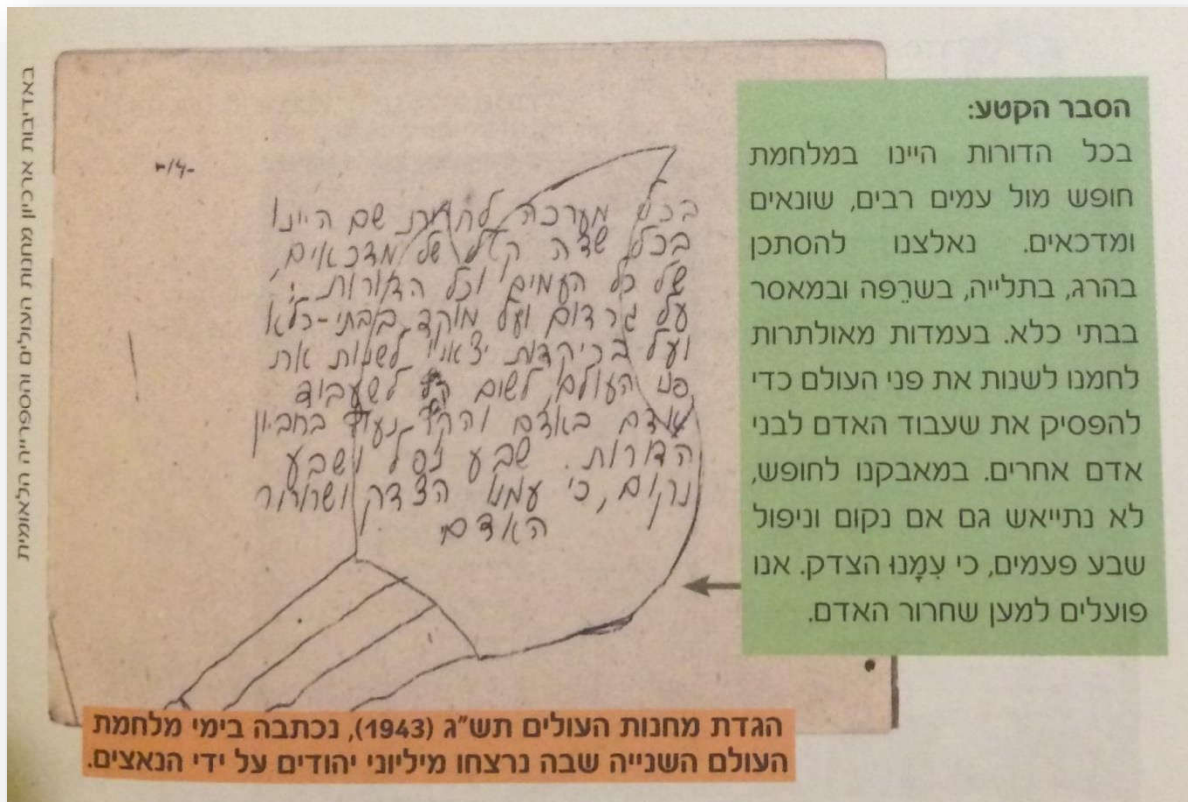 באדיבות ארכיון מחנות העולים והספרייה הלאומית
-14-
בכל מערכה לחרות שם היינו
בכל שדה קטל של מדכאים,
של כל העמים וכל הדורות
על גרדום ועל מוקד, בבתי-כלא
ועל בריקדות יצאנו לשנות את
פני העולם, לשום קץ לשעבוד
אדם באדם והקץ נעוץ בחביון
הדורות. שבע נפל ושבע
נקום, כי עמנו הצדק ושחרור
האדם
הסבר הקטע:
בכל הדורות היינו במלחמת
חופש מול עמים רבים, שונאים
ומדכאים. נאלצנו להסתכן
בהרג, בתלייה, בשרֵפה ובמאסר
בבתי כלא. בעמדות מאולתרות
לחמנו לשנות את פני העולם כדי
להפסיק את שעבוד האדם לבני
אדם אחרים. במאבקנו לחופש,
לא נתייאש גם אם נקום וניפול
שבע פעמים, כי עִמָנוּ הצדק. אנו
פועלים למען שחרור האדם.
הגדת מחנות העולים תש"ג (1943), נכתבה בימי מלחמת
העולם השנייה שבה נרצחו מיליוני יהודים על ידי הנאצים.